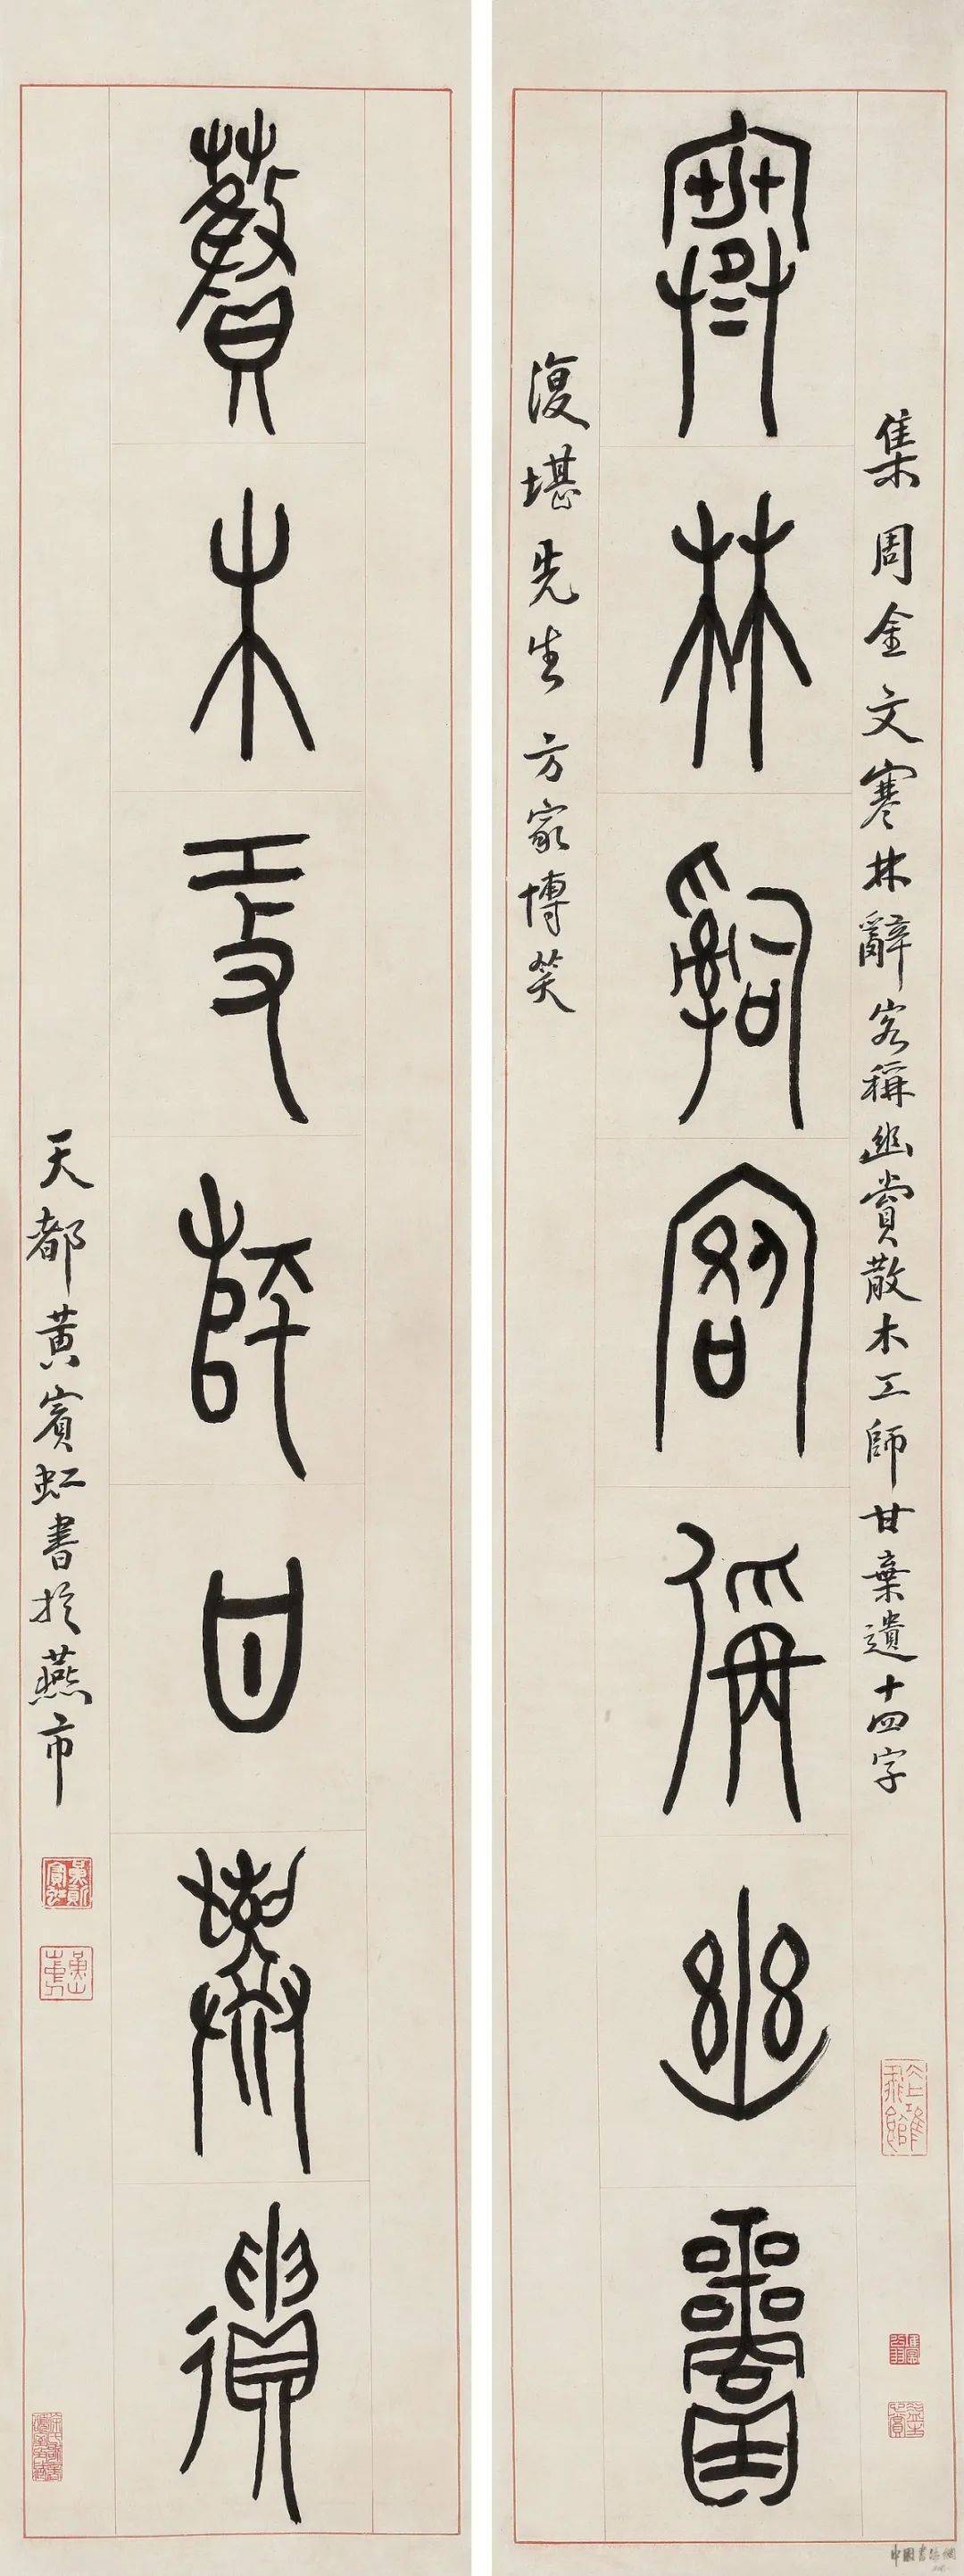 集周金文寒林辭客稱幽賞散木工師甘棄遺十四字
寒林辭客稱幽賞
復堪先生方家博笑
散木工師甘棄遺
天都黃賓虹書於燕市
中国书法网